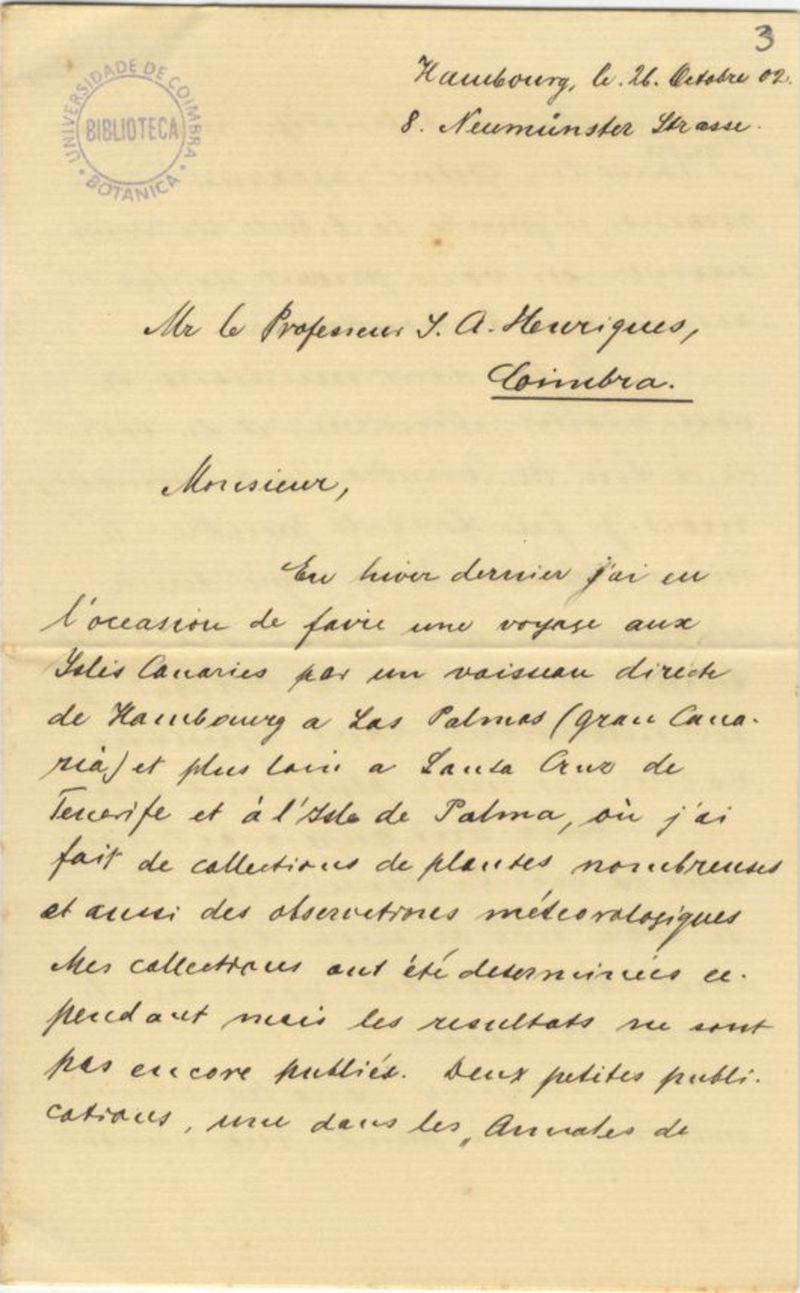 3
UNIVERSIDADE DE COIMBRA
BIBLIOTECA
BOTANICA
Hambourg, le. 26. Octobre 02.
8. Neumünster Strasse.
Mr le Professeur J. A. Henriques,
Coimbra.
Monsieur,
En hiver dernier j'ai eu
l'occasion de faire une voyage aux
Isles Canaries par un vaisseau directe
de Hambourg a Las Palmas (Gran Cana-
ria) et plus loin a Santa Cruz de
Tenerife et à l'Isle de Palma, où j'ai
fait de collections de plantes nombreuses
et aussi des observations météorologiques
Mes collections ont été determinées ce-
pendant mais les resultats ne sont
pas encore publiés. Deux petites publi-
cations, une dans les „Annales de